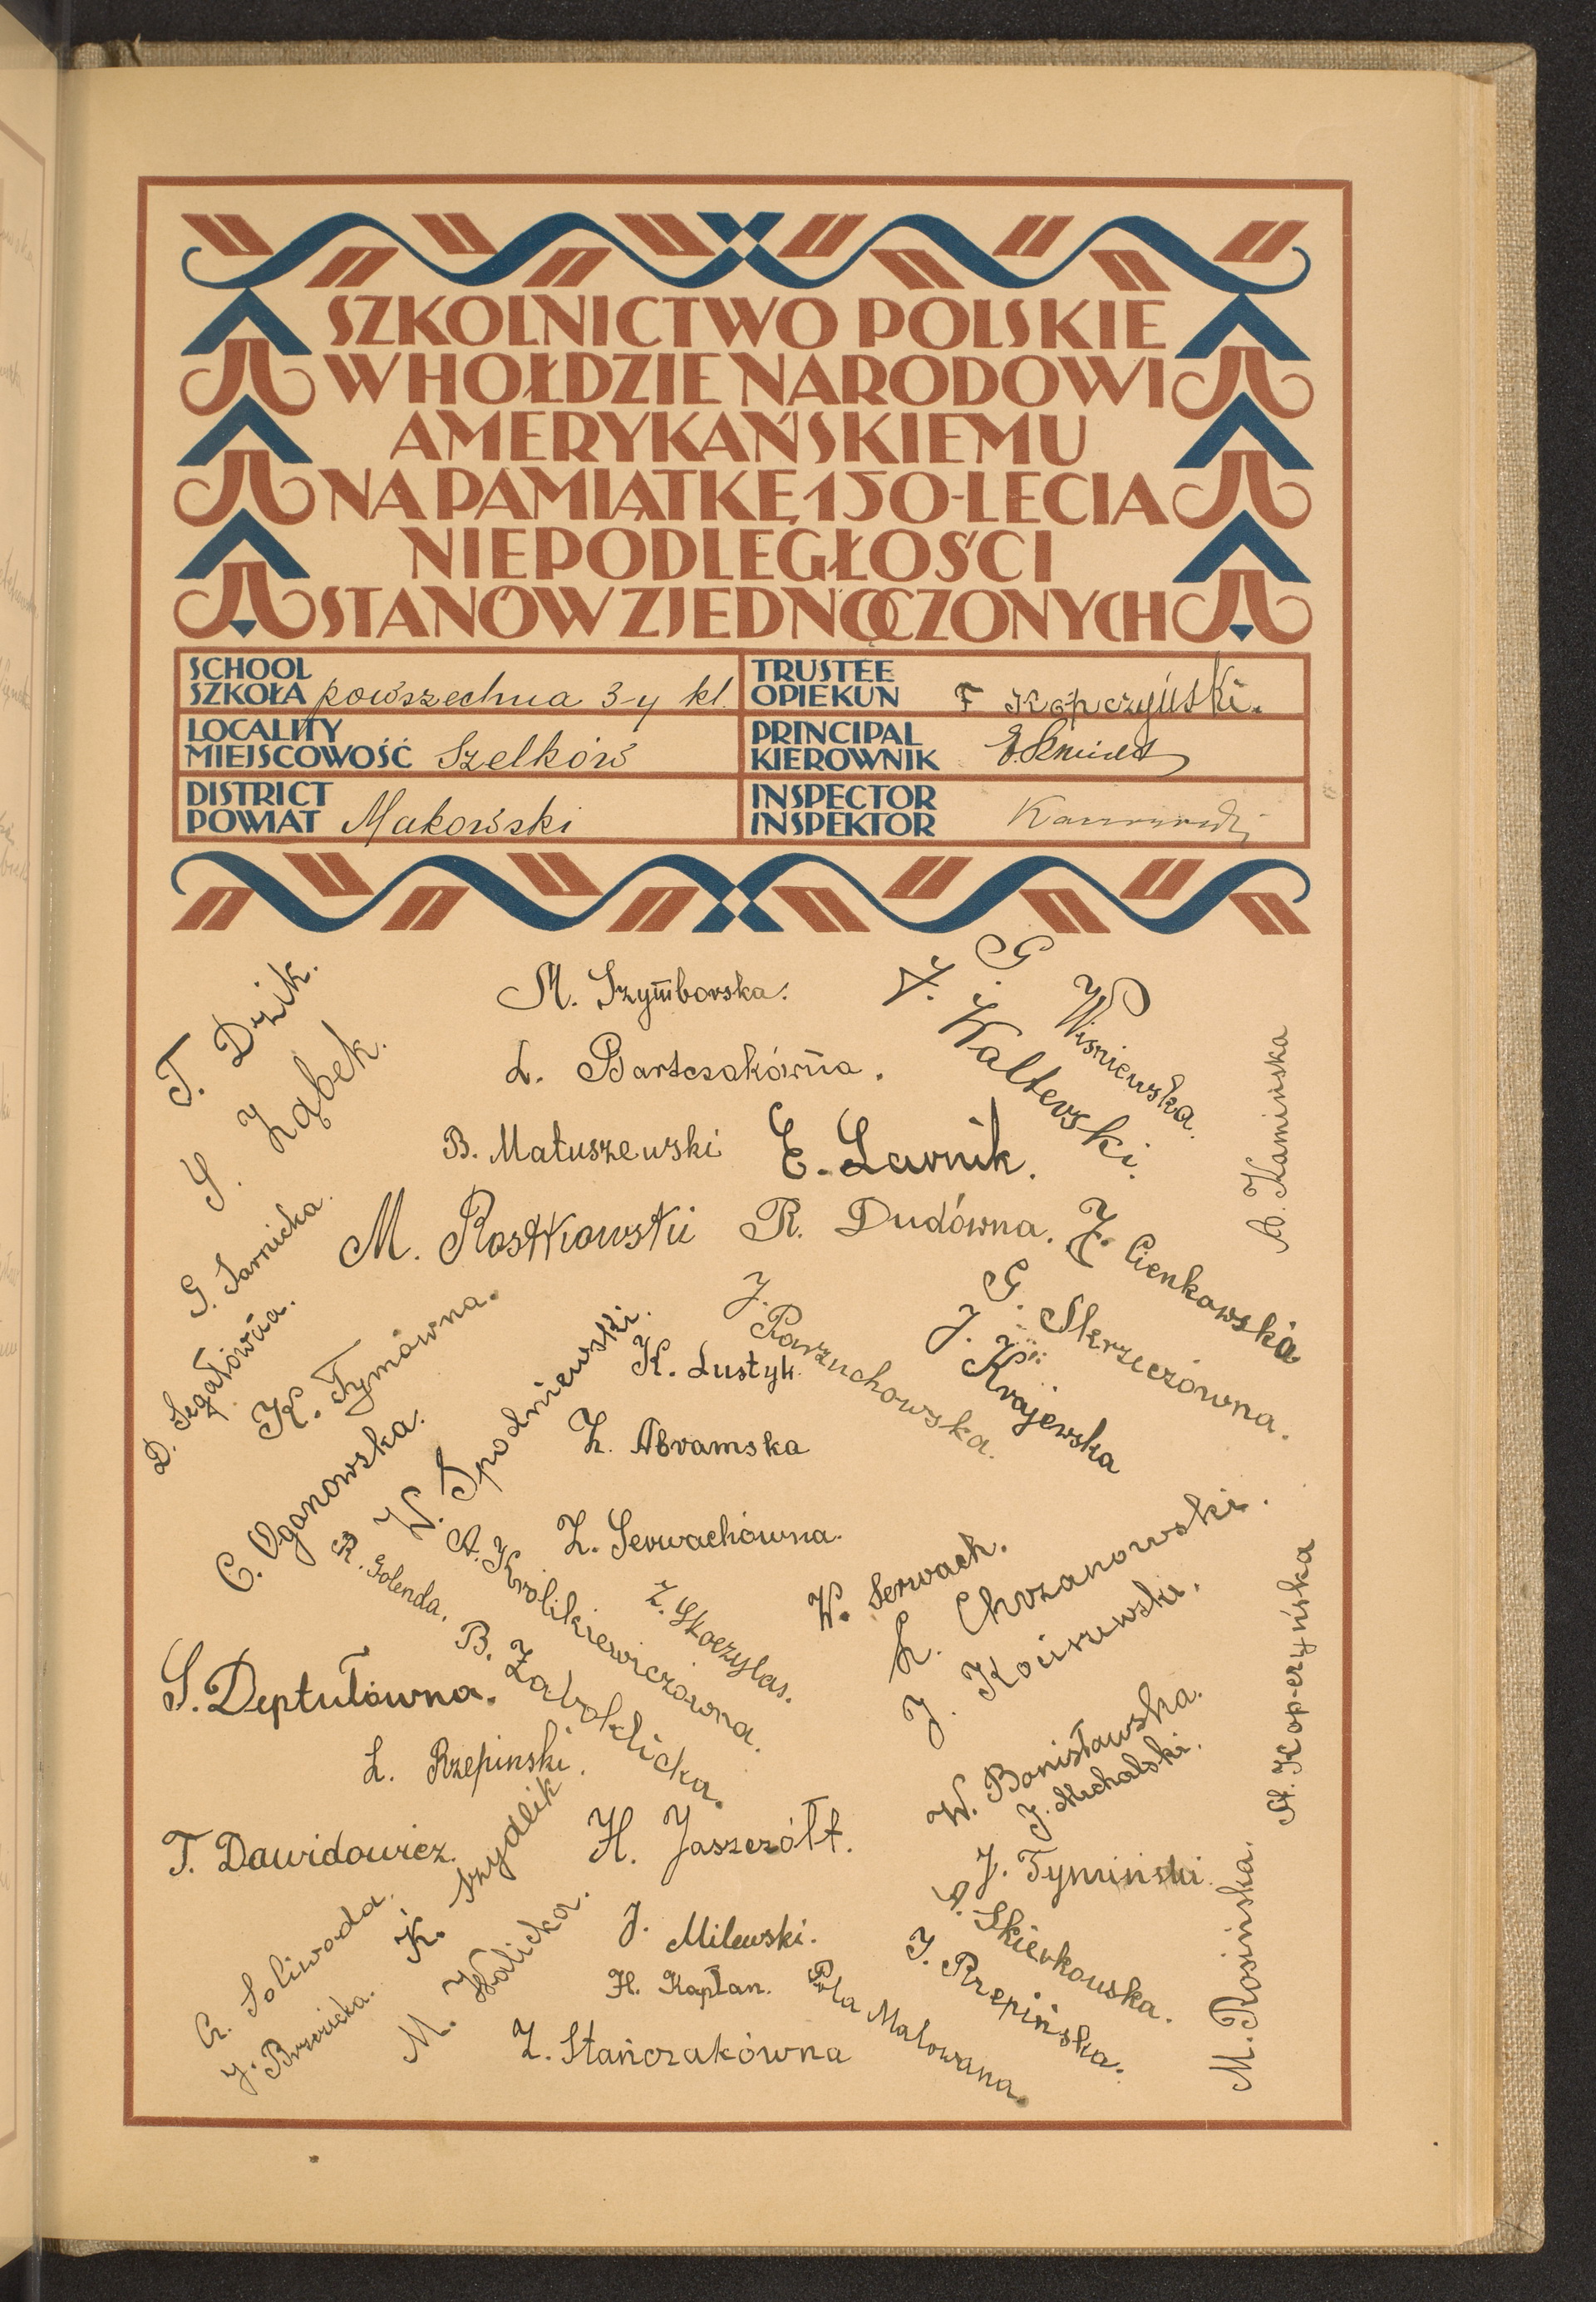 SZKOLNICTWO POLSKIE
W HOŁDZIE NARODOWI
AMERYKAŃSKIEMU
NA PAMIĄTKĘ 150-LECIA
NIEPODLEGŁOŚCI
STANÓW ZJEDNOCZONYCH
SCHOOL
SZKOŁA powszechna 3-y kl.
TRUSTEE
OPIEKUN F Kapczyński.
LOCALITY
MIEJSCOWOŚĆ Szelków
PRINCIPAL
KIEROWNIK
DISTRICT
POWIAT Makowski
INSPECTOR
INSPEKTOR
T. Dzik.
S. Ząbek.
M. Szymborska.
G. Wisniewska.
J. Walterski.
L. Bartczakówna.
B. Matuszewski
E. Larnik.
A. Kamińska
G. Sarnicka.
M. Rostkowski
R. Dudówna.
Z. Cienkowska
D. Segałówna.
K. Tymówna.
W. Spodniewski.
K. Lustyk.
J. Parzuchowska.
G. Skrzeczówna.
J. Krajewska
C. Oganowska.
Z. Abramska
R. Golenda.
A. Krolikiewiczówna.
Z. Serwachówna.
Z. Skoczylas.
W. Serwach.
L. Chrzanowski.
J. Kociszewski.
S. Deptułówna.
B. Zaboklicka.
L. Rzepinski.
W. Bonisławska.
J. Michalski.
St. Kopczyńska
T. Dawidowicz.
K. Szydlik
H. Jaszczółt.
J. Tymiński.
Cz. Soliwoda.
J. Brzozicka.
M. Walicka.
J. Milewski.
H. Kapłan.
Pola Malowana.
A. Skierkowska.
J. Rzepińska.
M. Rosińska.
Z. Stańczakówna